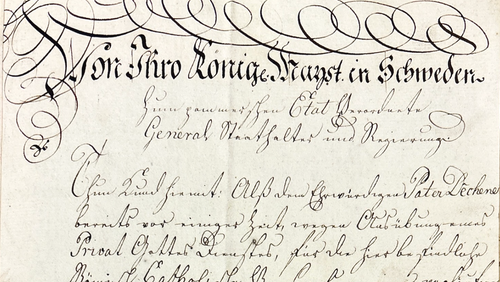 Von Ihro Königl. Mayst. in Schweden
Zum pommerschen Etat Verordnete
General Statthalter und Regierung
Thun Kund hiemit: Alß dem Ehrwürdigen Pater Dechene
bereits vor einiger Zeit, wegen Ausübung eines
Privat Gottes Dienstes, für die hier befindliche
Römisch Catholische